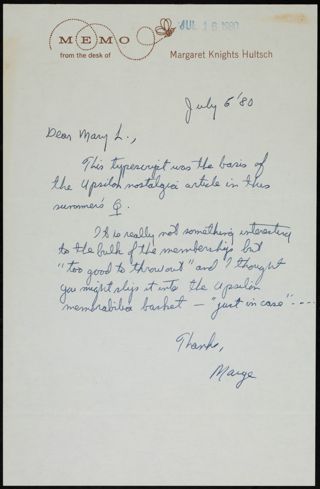 MEMO
JUL 16 1980
from the desk of
Margaret Knights Hultsch
July 6 '80
Dear Mary L.,
This typescript was the basis of
the Upsilon nostalgia article in this
summer's Q.
It is really not something interesting
to the bulk of the membership but
"too good to throw out" and I thought
you might slip it into the Upsilon
memorabilia basket — "just in case"....
Thanks,
Marge